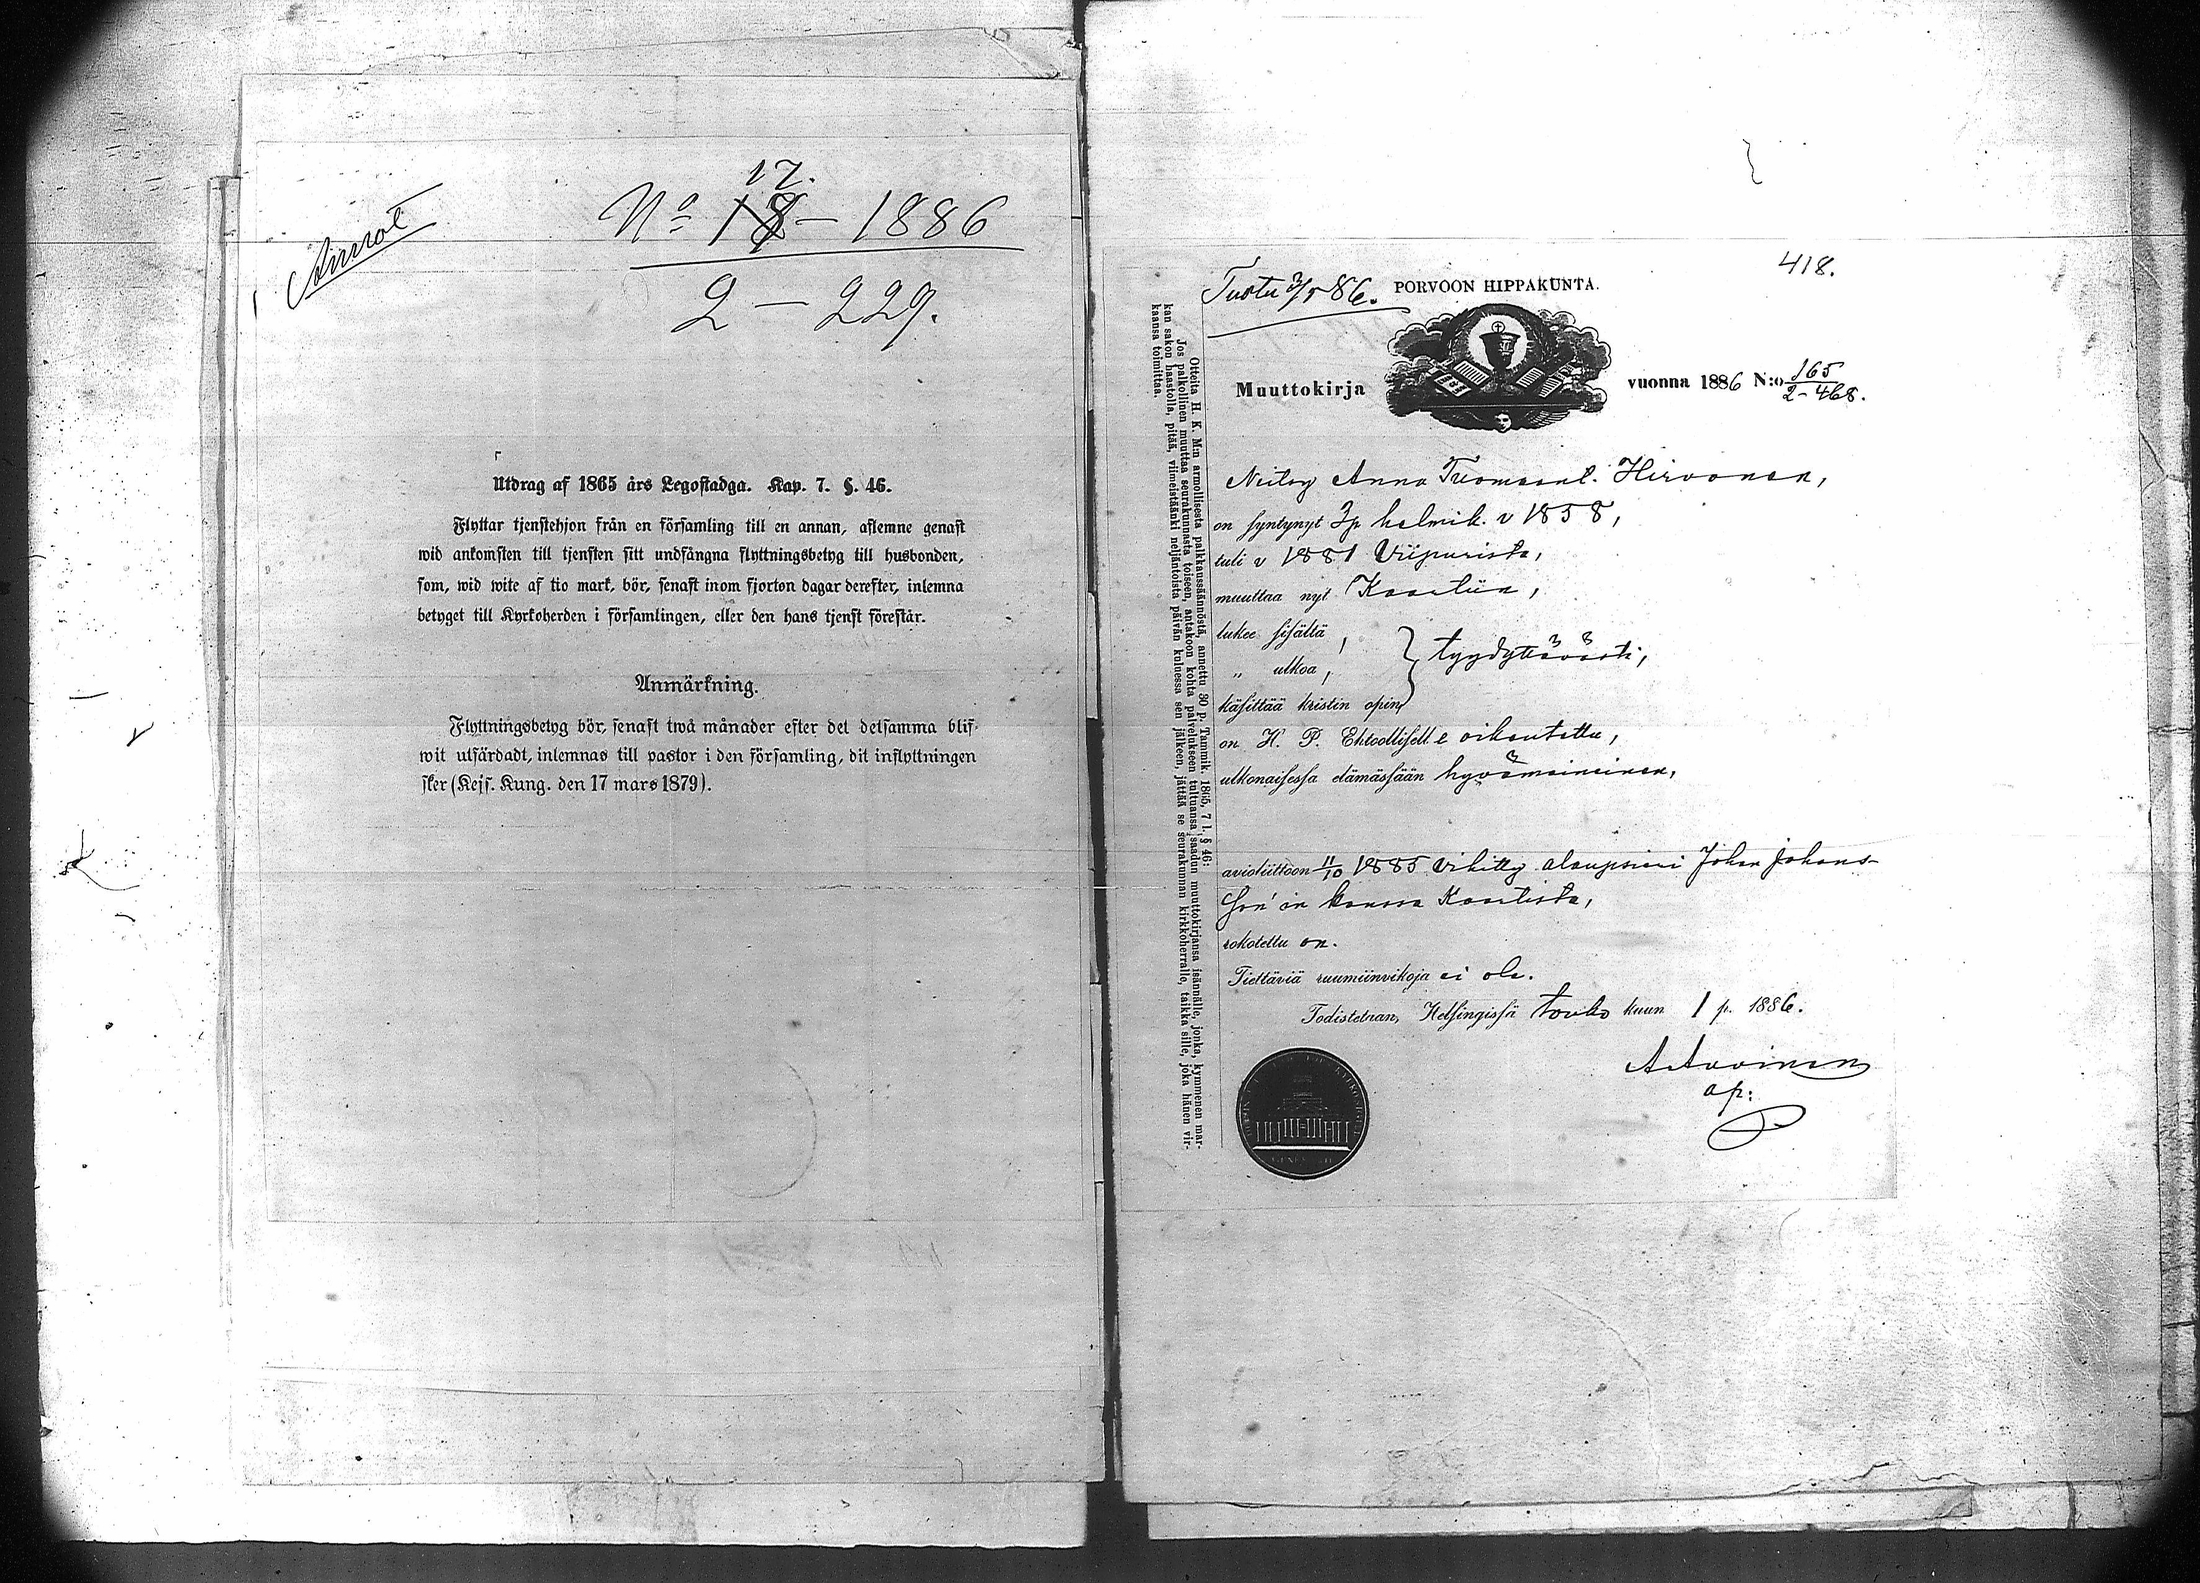 Annot
17.
No 18 – 1886
2 – 229.
Utdrag af 1865 års Legostadga. Kap. 7. §. 46.
Flyttar tjenstehjon från en församling till en annan, aflemne genast
wid ankomsten till tjensten sitt undfångna flyttningsbetyg till husbonden,
som, wid wite af tio mark, bör, senast inom fjorton dagar derefter, inlemna
betyget till Kyrkoherden i församlingen, eller den hans tjenst förestår.
Anmärkning.
Flyttningsbetyg bör, senast twå månader efter det detsamma blif-
wit utfärdadt, inlemnas till pastor i den församling, dit inflyttningen
sker (Kejs. Kung. den 17 mars 1879).
418.
Tuotu 3/5 86.
PORVOON HIPPAKUNTA.
Muuttokirja vuonna 1886 N:o 165
2–468.
Neitsy Anna Tuomaant. Hirvonen,
on syntynyt 3 p helmik. v 1858,
tuli v 1881 Viipurista,
muuttaa nyt Kaartiin,
lukee sisältä,
„ ulkoa, } tyydyttävästi,
käsittää kristin opin
on H. P. Ehtoollisell e oikeutettu,
ulkonaisessa elämässään hyvämaineinen,
avioliittoon 11/10 1885 vihitty alaupsieri Johan Johans-
son'in kanssa Kaartista,
rokotettu on.
Tiettäviä ruumiinvikoja ei ole.
Todistetaan, Helsingissä touko kuun 1 p. 1886.
ap:
Otteita H. K. M:n armollisesta palkkaussäännöstä, annettu 30 p. Tammik. 1865, 7 l. § 46:
Jos palkollinen muuttaa seurakunnasta toiseen, antakoon kohta palvelukseen tultuansa saadun muuttokirjansa isännälle, jonka, kymmenen mar-
kan sakon haastolla, pitää, viimeistäänki neljäntoista päivän kuluessa sen jälkeen, jättää se seurakunnan kirkkoherralle, taikka sille, joka hänen vir-
kaansa toimittaa.